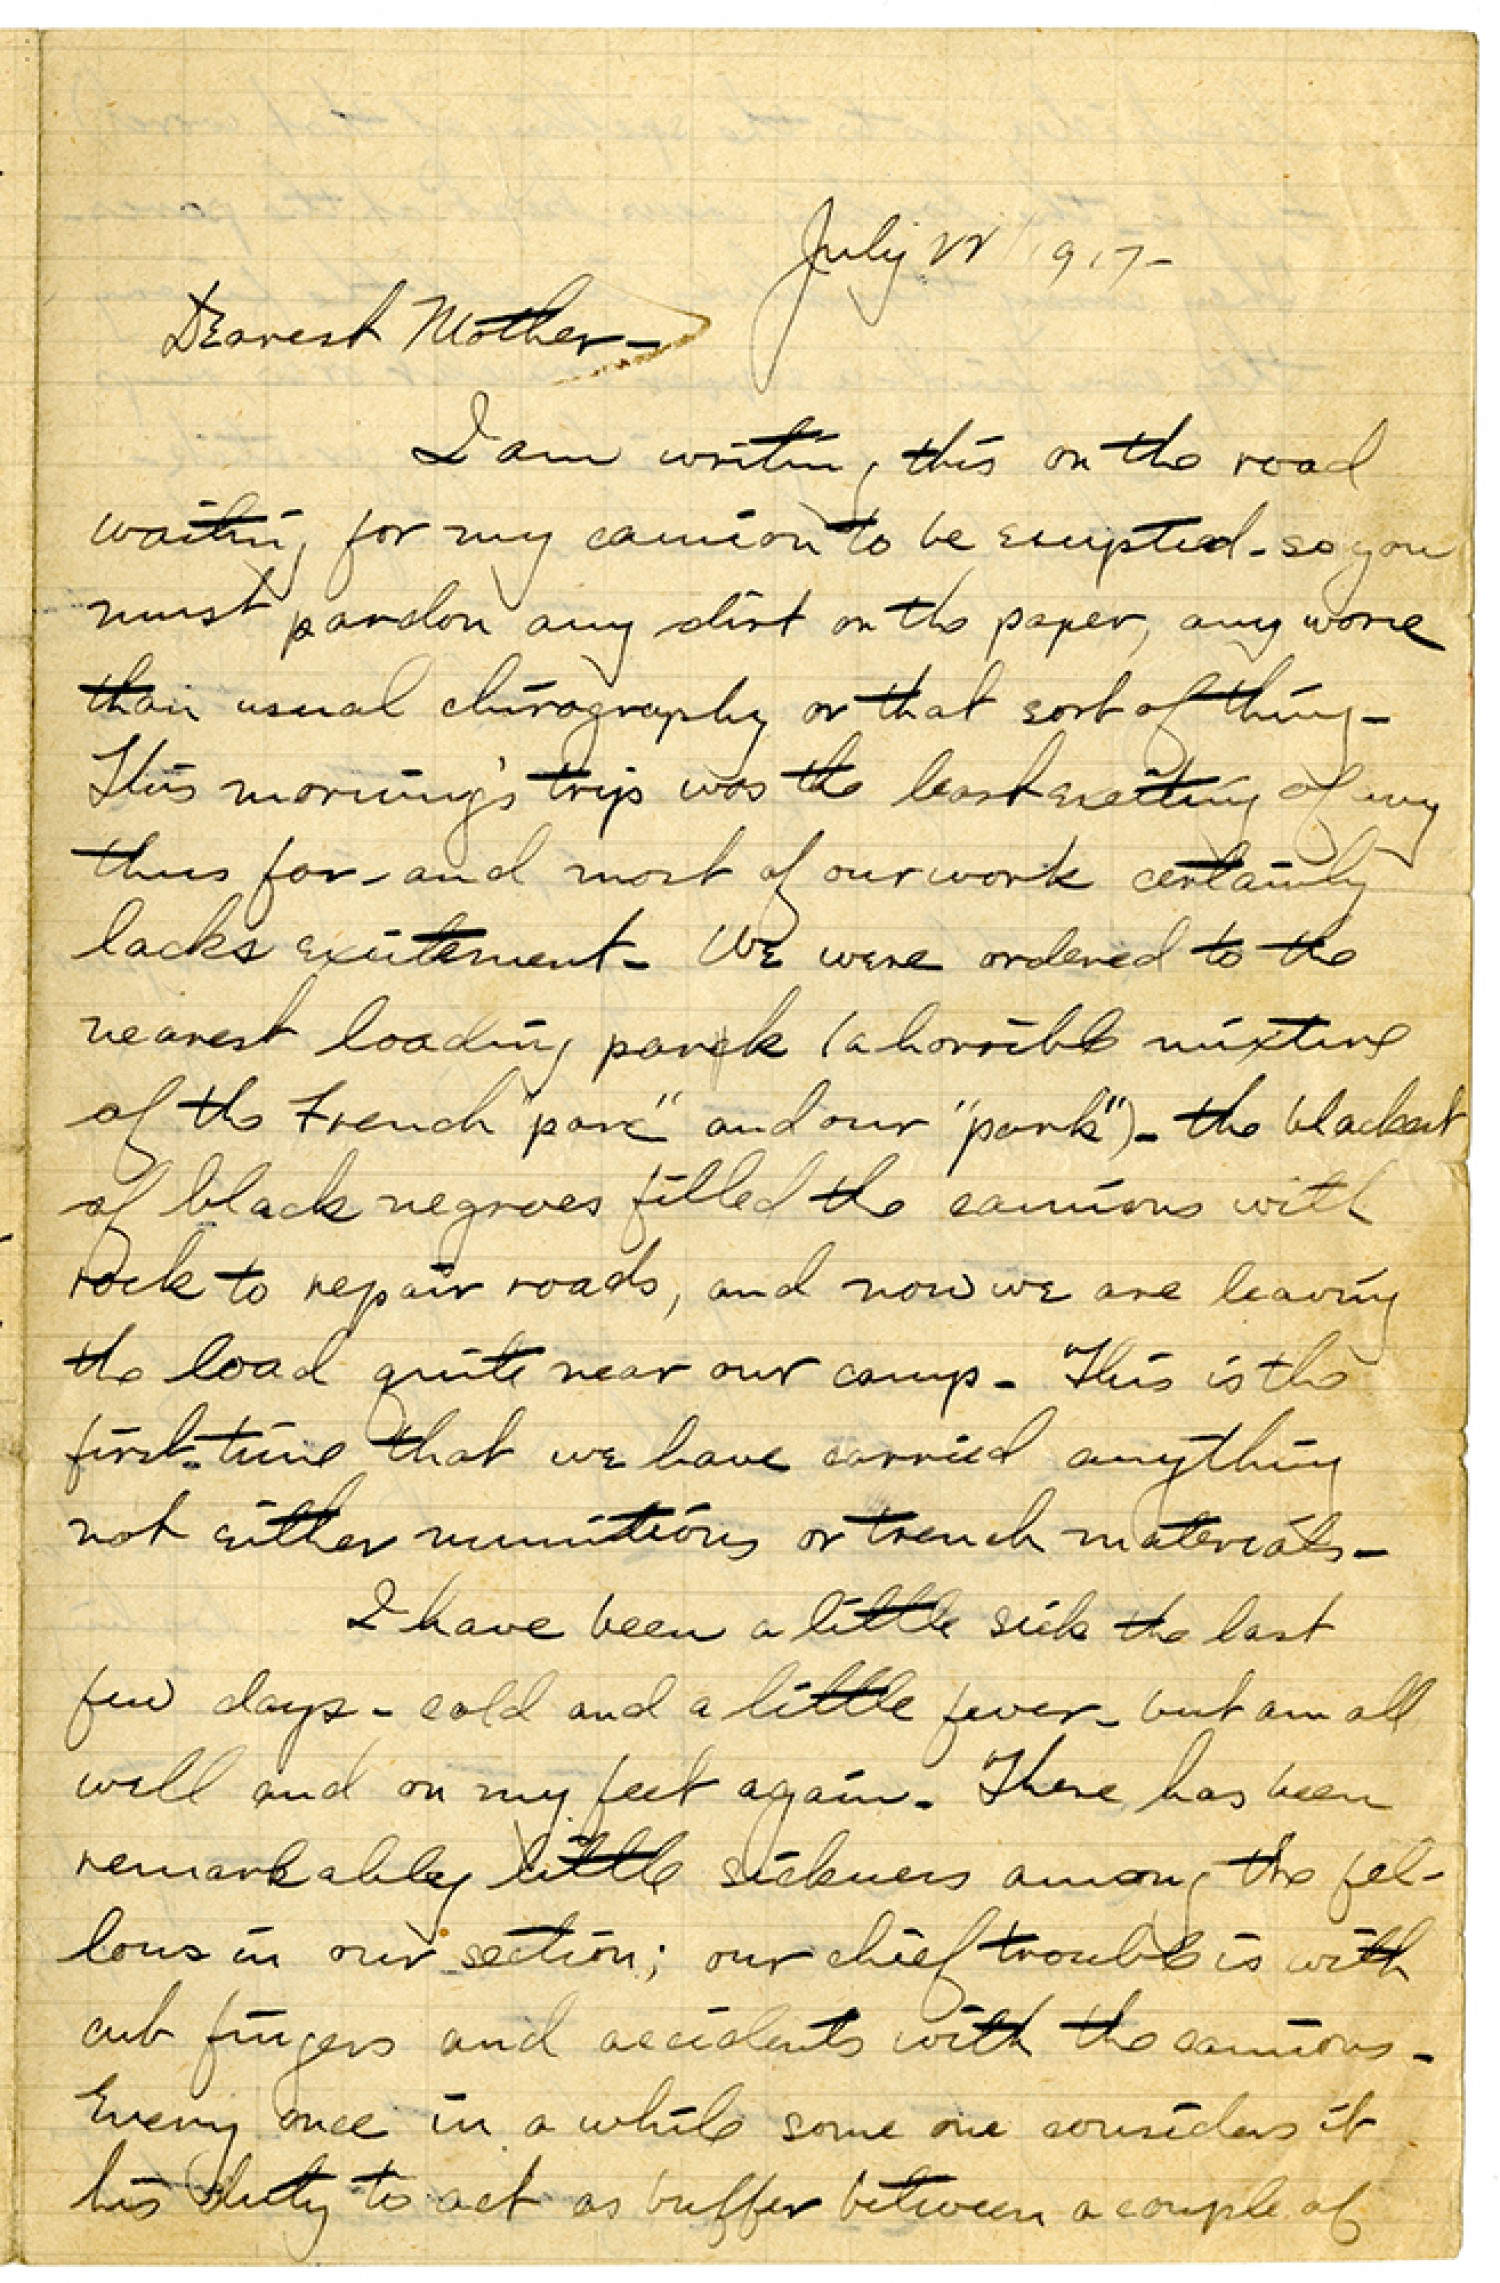 July 22 1917-
Dearest Mother-
I am writing this on the road
waiting for my camion to be emptied - so you
must pardon any dirt on the paper, any worse
than usual chirography or that sort of thing-
This morning's trip was the least exciting of any
thus far - and most of our work certainly
lacks excitement - We were ordered to the
nearest loading parck (a horrible mixture
of the French "parc" and our "park") - the blackest
of black negroes filled the camions with
rock to repair roads, and now we are leaving
the load quite near our camp - This is the
first time that we have carried anything
not either munitions or trench materials -
I have been a little sick the last
few days - cold and a little fever - but am all
well and on my feet again - There has been
remarkably little sickness among the fel-
lows in our section; our chief trouble is with
cut fingers and accidents with the camions -
Every once in a while some one considers it
his duty to act as buffer between a couple of